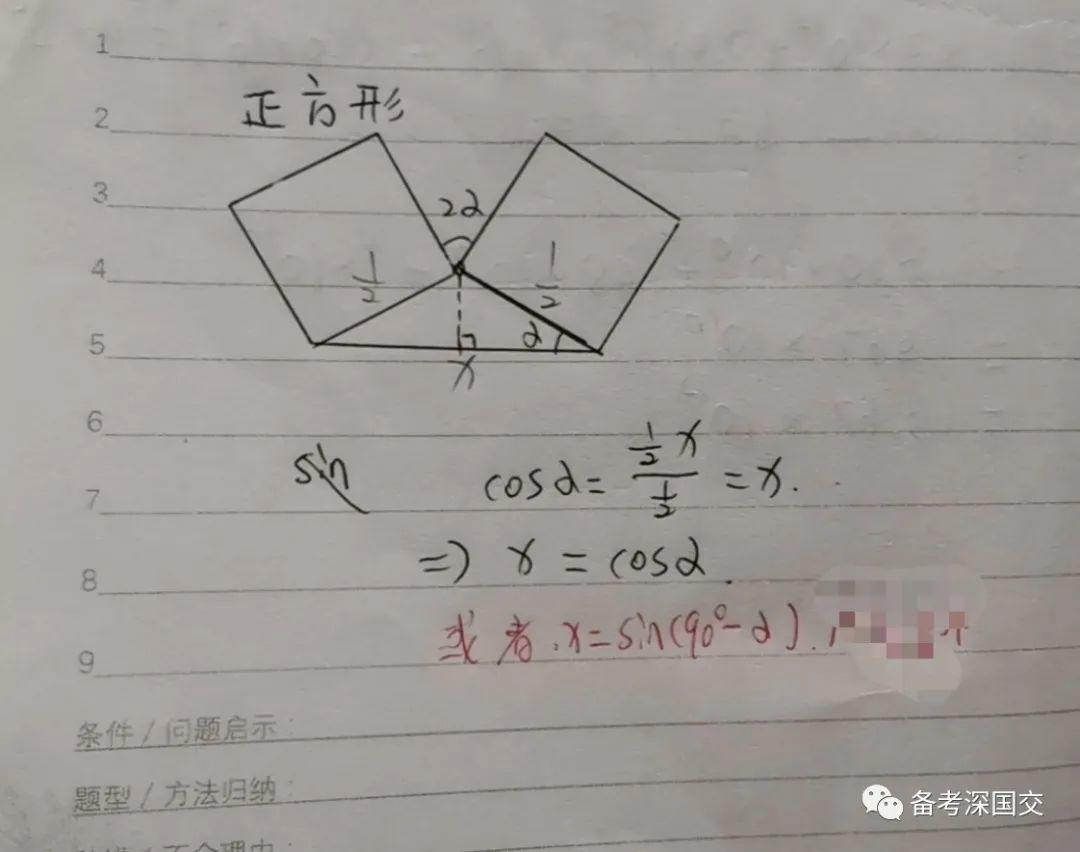 1
2
正方形
3
2α
4
1/2
1/2
5
α
x
6
sin
cosα = (1/2 x)/(1/2) = x.
7
=> x = cosα.
8
或者.x=sin(90°-α).
9
条件 / 问题启示:
题型 / 方法归纳:
备考深国交